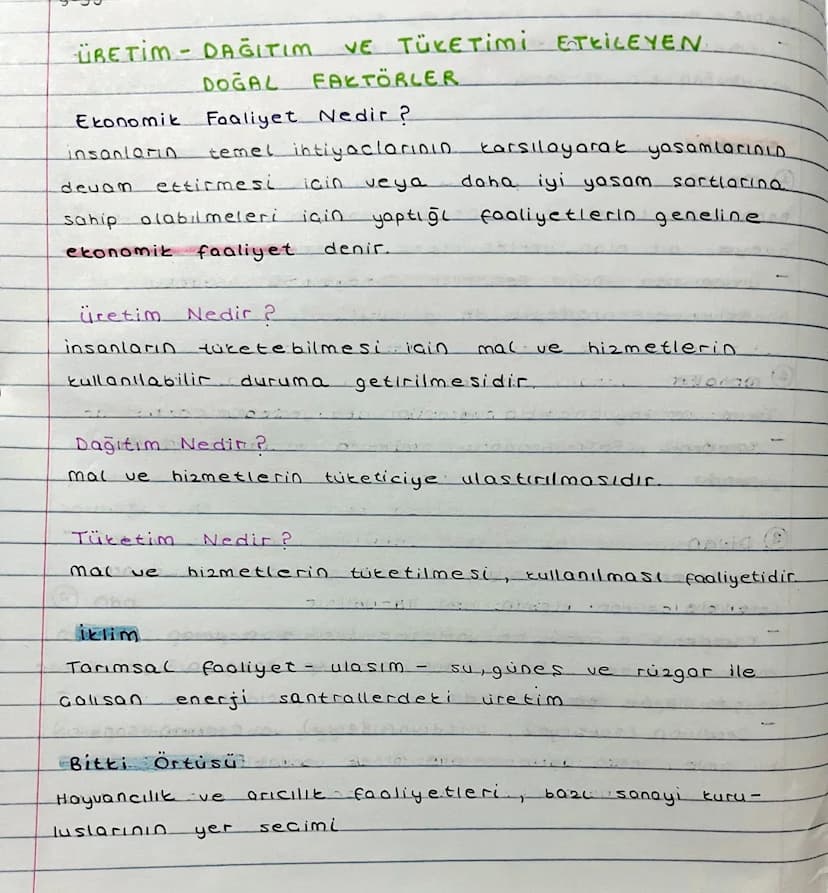 ÜRETİM - DAĞITIM VE TÜKETİMİ ETKİLEYEN
DOĞAL FAKTÖRLER
Ekonomik Faaliyet Nedir?
insanların temel ihtiyaclarının karsılayarak yasamlarının
devam ettirmesi icin veya daha iyi yasam sartlarına
sahip olabilmeleri için yaptığı faaliyetlerin geneline
ekonomik faaliyet denir.
üretim Nedir?
insanların tüketebilmesi icin mal ve hizmetlerin
kullanılabilir duruma getirilmesidir.
Dağıtım Nedir?
mal ve hizmetlerin tüketiciye ulastırılmasıdır.
Tüketim Nedir?
mal ve hizmetlerin tüketilmesi, kullanılması faaliyetidir
iklim
Tarımsal faaliyet - ulasım - su, güneş ve rüzgar ile
Calısan enerji santrallerdeki üretim
Bitki Örtüsü
Hayvancılık ve arıcılık faaliyetleri, bazı sanayi kuru-
luslarının yer secimi